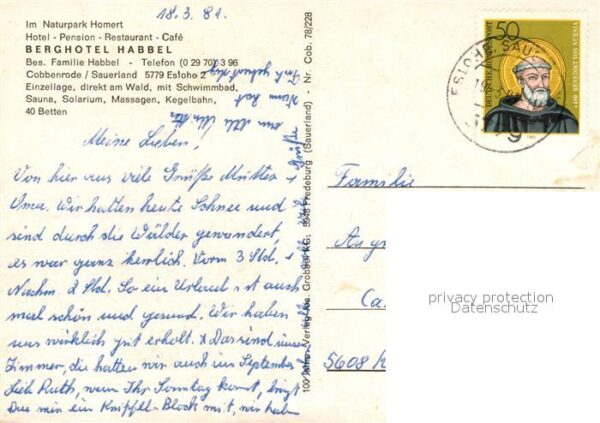 18.3.81.
Im Naturpark Homert
Hotel - Pension - Restaurant - Café
BERGHOTEL HABBEL
Bes. Familie Habbel - Telefon (0 29 70) 3 96
Cobbenrode / Sauerland 5779 Eslohe 2
Einzellage, direkt am Wald, mit Schwimmbad,
Sauna, Solarium, Massagen, Kegelbahn,
40 Betten
Meine Lieben,
Von hier aus viele Grüße Mutter +
Oma. Wir hatten heute Schnee und
sind durch die Wälder gewandert,
es war ganz herrlich. Vorm 3 Std. +
Nachm. 2 Std. So ein Urlaub ist auch
mal schön und gesund. Wir haben
uns wirklich gut erholt. Das sind unsere
Zimmer, die hatten wir auch im September
Liebe Ruth, wenn Ihr Sonntag kommt, bringt
Du mir ein Kniffel-Block mit, wir haben
Grüße
Verlag Jos. Grobbel KG. 5948 Fredeburg (Sauerland) - Nr. Cob. 78/228
50
DEUTSCHE BUNDESPOST
BENEDIKT VON NURSIA
ESLOHE, SAU
Familie
5608
privacy protection
Datenschutz